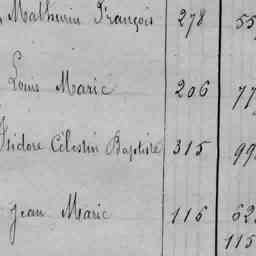 Mathurin François 278 55
Louis Marie 206 77
Isidore Célestin Baptiste 315 99
Jean Marie 116 62
115